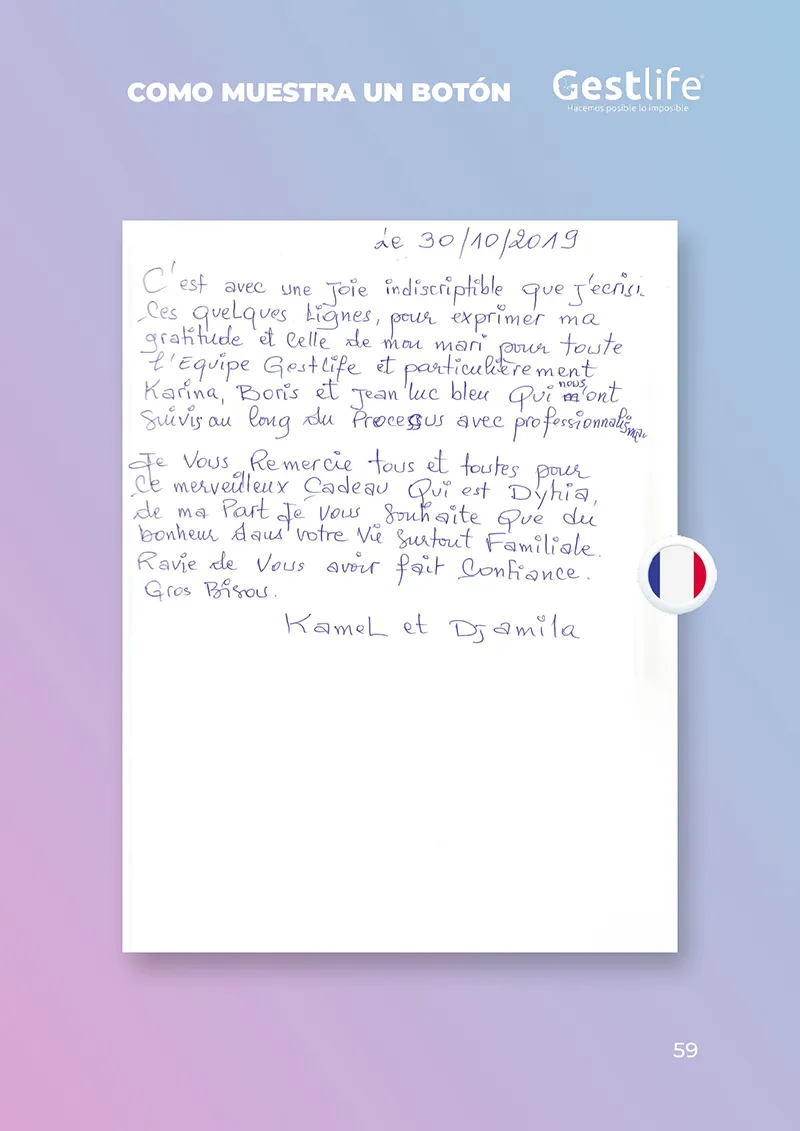 COMO MUESTRA UN BOTÓN
Gestlife
Hacemos posible lo imposible
Le 30/10/2019
C'est avec une Joie indiscriptible que j'ecrisi
Ces quelques Lignes, pour exprimer ma
gratitude et Celle de mon mari pour toute
l'Equipe Gestlife et particulièrement
Karina, Boris et Jean luc bleu Qui nous ont
Suivis au long du Processus avec professionnalisme
Je Vous Remercie tous et toutes pour
Ce merveilleux Cadeau Qui est Dyhia,
de ma Part Je Vous Souhaite Que du
bonheur dans votre Vie Surtout Familiale.
Ravie de Vous avoir fait Confiance.
Gros Bisou.
KameL et Djamila
59